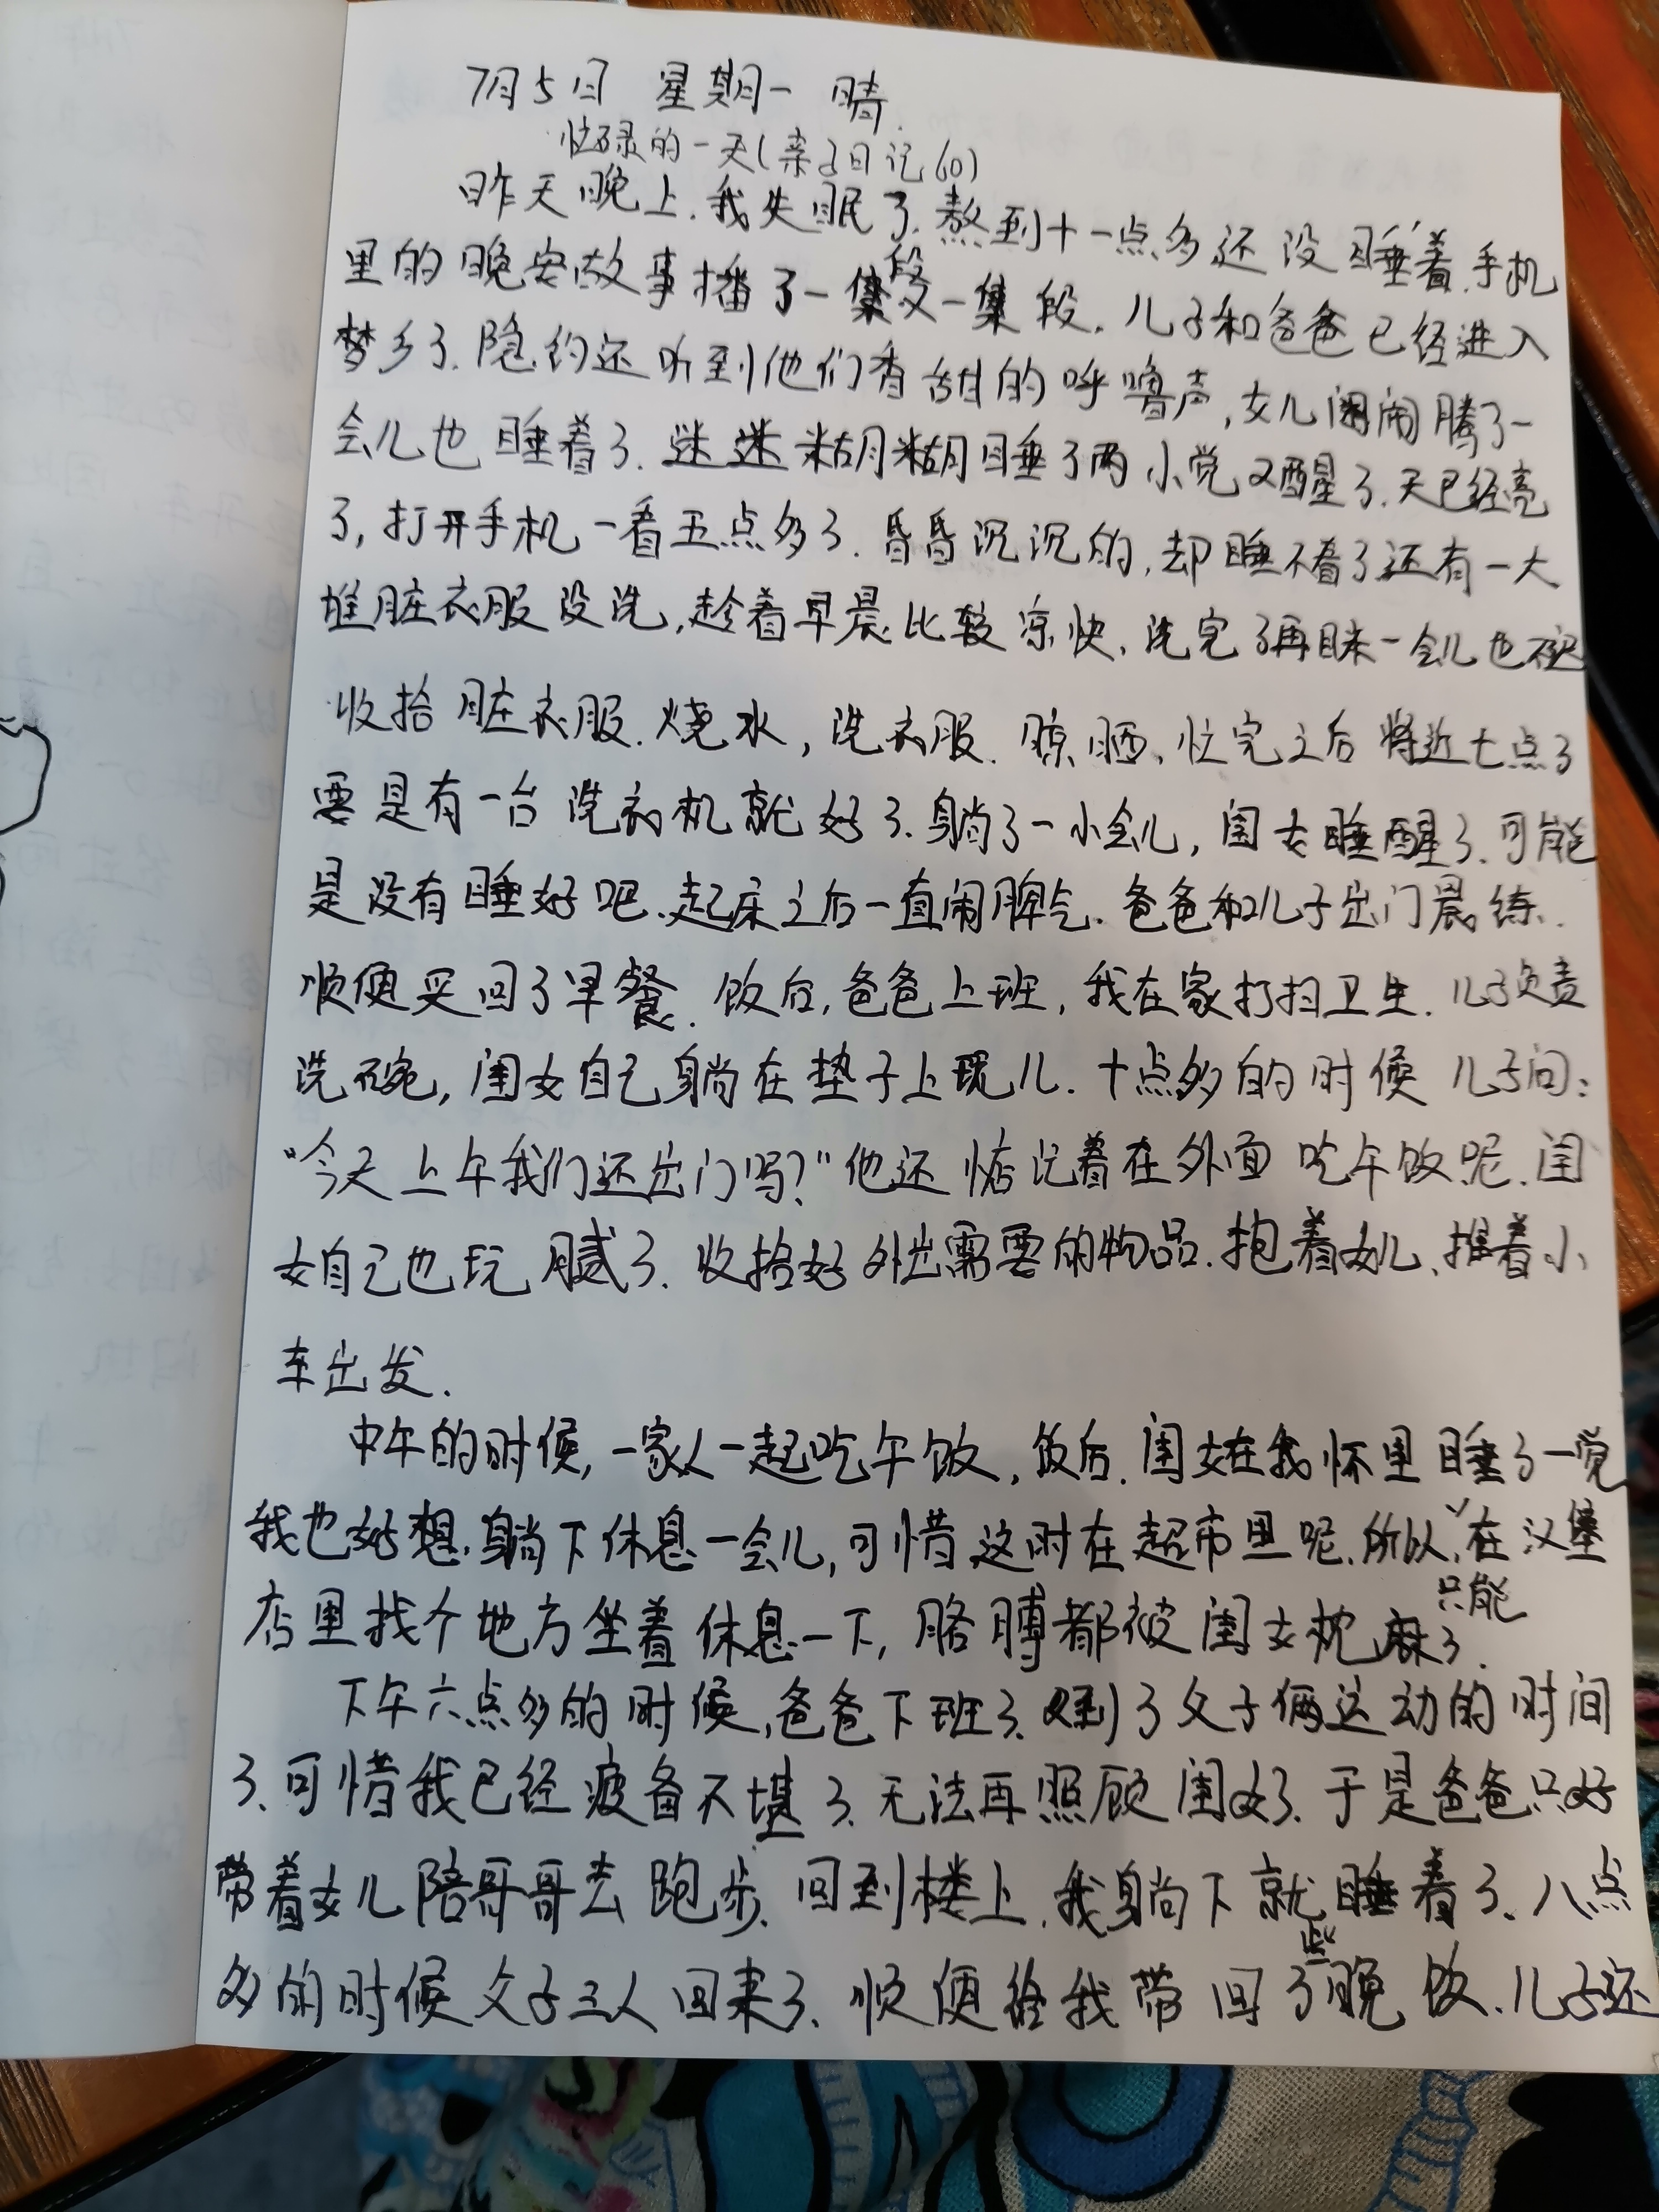 7月5日 星期一 晴.
忙碌的一天(亲子日记60)
昨天晚上.我失眠了.熬到十一点多还没睡着.手机
里的晚安故事播了一段又一段.儿子和爸爸已经进入
梦乡了.隐约还听到他们香甜的呼噜声,女儿闹腾了一
会儿也睡着了.迷迷糊糊睡了两小觉又醒了.天已经亮
了,打开手机一看五点多了.昏昏沉沉的,却睡不着了还有一大
堆脏衣服没洗,趁着早晨比较凉快,洗完了再眯一会儿也不迟
收拾脏衣服.烧水,洗衣服.晾晒、忙完之后将近七点了
要是有一台洗衣机就好了.躺了一小会儿,闺女睡醒了.可能
是没有睡好吧、起床之后一直闹脾气.爸爸和儿子出门晨练.
顺便买回了早餐.饭后,爸爸上班,我在家打扫卫生.儿子负责
洗碗,闺女自己躺在垫子上玩儿.十点多的时候儿子问:
“今天上午我们还出门吗?”他还惦记着在外面吃午饭呢.闺
女自己也玩腻了.收拾好外出需要的物品.抱着女儿、推着小
车出发.
中午的时候,一家人一起吃午饭,饭后.闺女在我怀里睡了一觉
我也好想躺下休息一会儿,可惜这时在超市里呢.所以,只能在汉堡
店里找个地方坐着休息一下,胳膊都被闺女枕麻了.
下午六点多的时候,爸爸下班了.又到了父子俩运动的时间
了、可惜我已经疲备不堪了.无法再照顾闺女了.于是爸爸只好
带着女儿陪哥哥去跑步.回到楼上,我躺下就睡着了、八点
多的时候父子三人回来了.顺便给我带回了些晚饭.儿子还